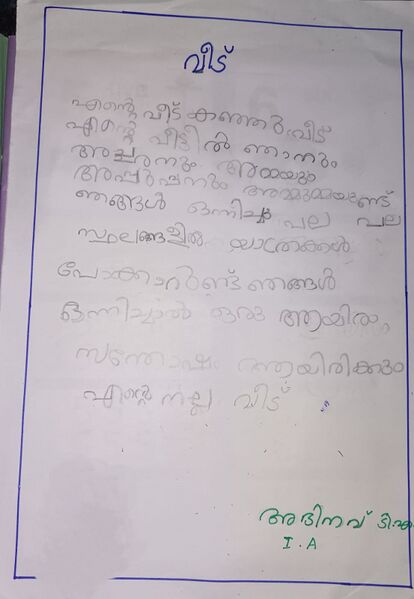 വീട്
എന്റെ വീട് കുഞ്ഞു വീട്
എന്റെ വീട്ടിൽ ഞാനും
അച്ചനും അമ്മയും
അപ്പുപ്പനും അമ്മുമ്മയുണ്ട്
ഞങ്ങൾ ഒന്നിച്ചു പല പല
സ്ഥലങ്ങളിൽ യാത്രകൾ
പോകാറുണ്ട് ഞങ്ങൾ
ഒന്നിച്ചാൽ ഒരു
സന്തോഷം
എന്റെ നല്ല വീട്
അഭിനവ്
I. A